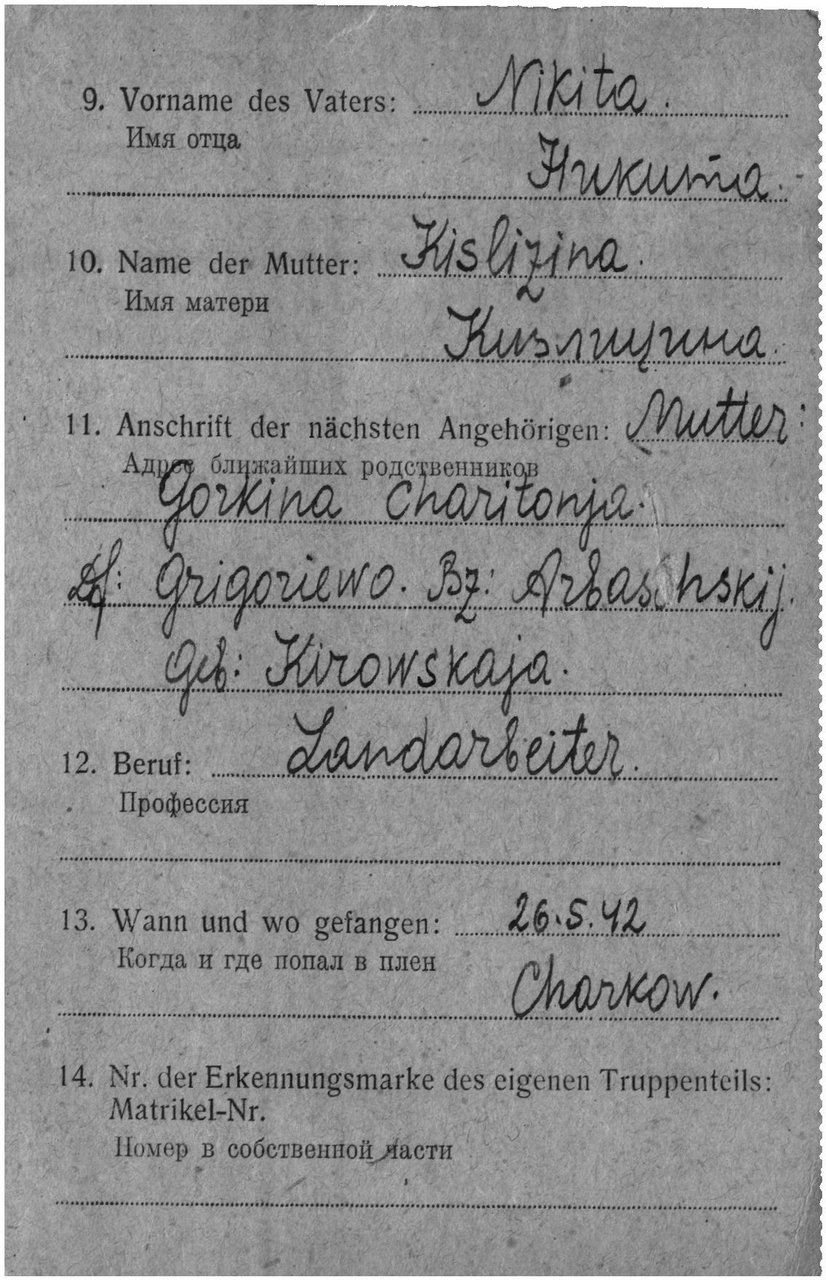 9. Vorname des Vaters: Nikita.
Имя отца
Никита.
10. Name der Mutter: Kislizina.
Имя матери
Кизлицина.
11. Anschrift der nächsten Angehörigen: Mutter:
Адрес ближайших родственников
Gorkina Charitonja.
Df: Grigoriewo. Bz: Arbaschskij.
Geb: Kirowskaja.
12. Beruf: Landarbeiter.
Профессия
13. Wann und wo gefangen: 26.5.42
Когда и где попал в плен
Charkow.
14. Nr. der Erkennungsmarke des eigenen Truppenteils:
Matrikel-Nr.
Номер в собственной части